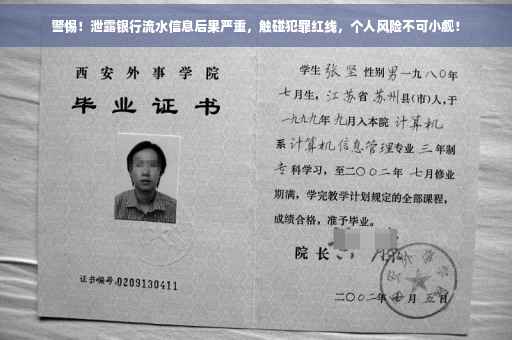 警惕！泄露银行流水信息后果严重，触碰犯罪红线，个人风险不可小觑！
西安外事学院
毕业证书
证书编号:0209130411
学生张坚性别男一九八〇年
七月生，江苏省苏州县(市)人，于
一九九九年九月入本院计算机
系计算机信息管理专业三年制
专科学习，至二〇〇二年七月修业
期满，学完教学计划规定的全部课程，
成绩合格，准予毕业。
院长
二〇〇二年 月五日